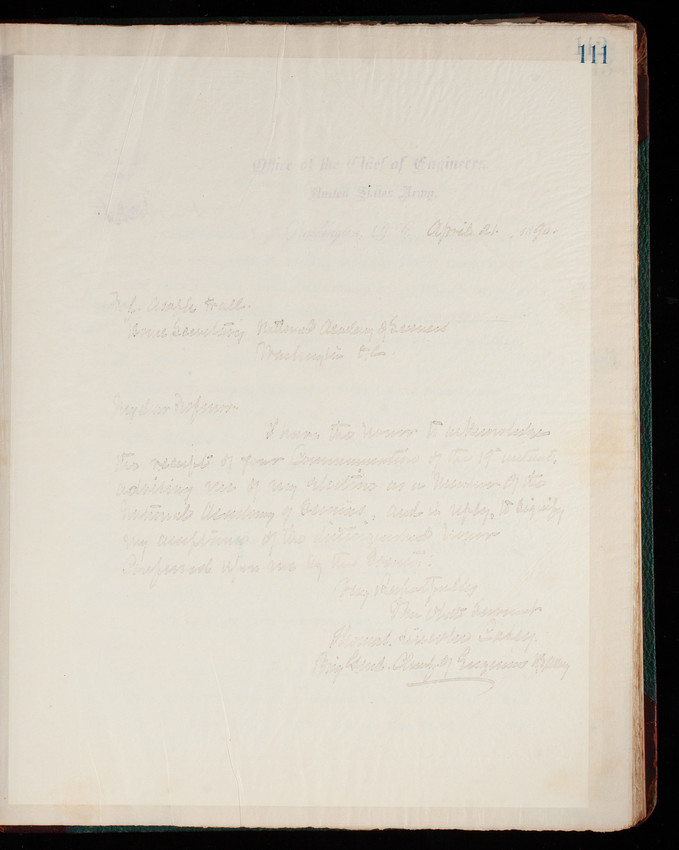 111
Office of the Chief of Engineers,
United States Army,
Washington, D.C. April 21, 1890.
Asaph Hall.
Home Secretary National Academy of Sciences
Washington D.C.
My dear Professor
I have the honor to acknowledge
the receipt of your Communication of the 19th instant,
advising me of my election as a Member of the
National Academy of Sciences, and in reply, to signify
my acceptance of the distinguished honor
Conferred upon me by the
Very Respectfully
Your Obdt Servant
Thomas Lincoln Casey.
Brig Genl. Chief of Engineers